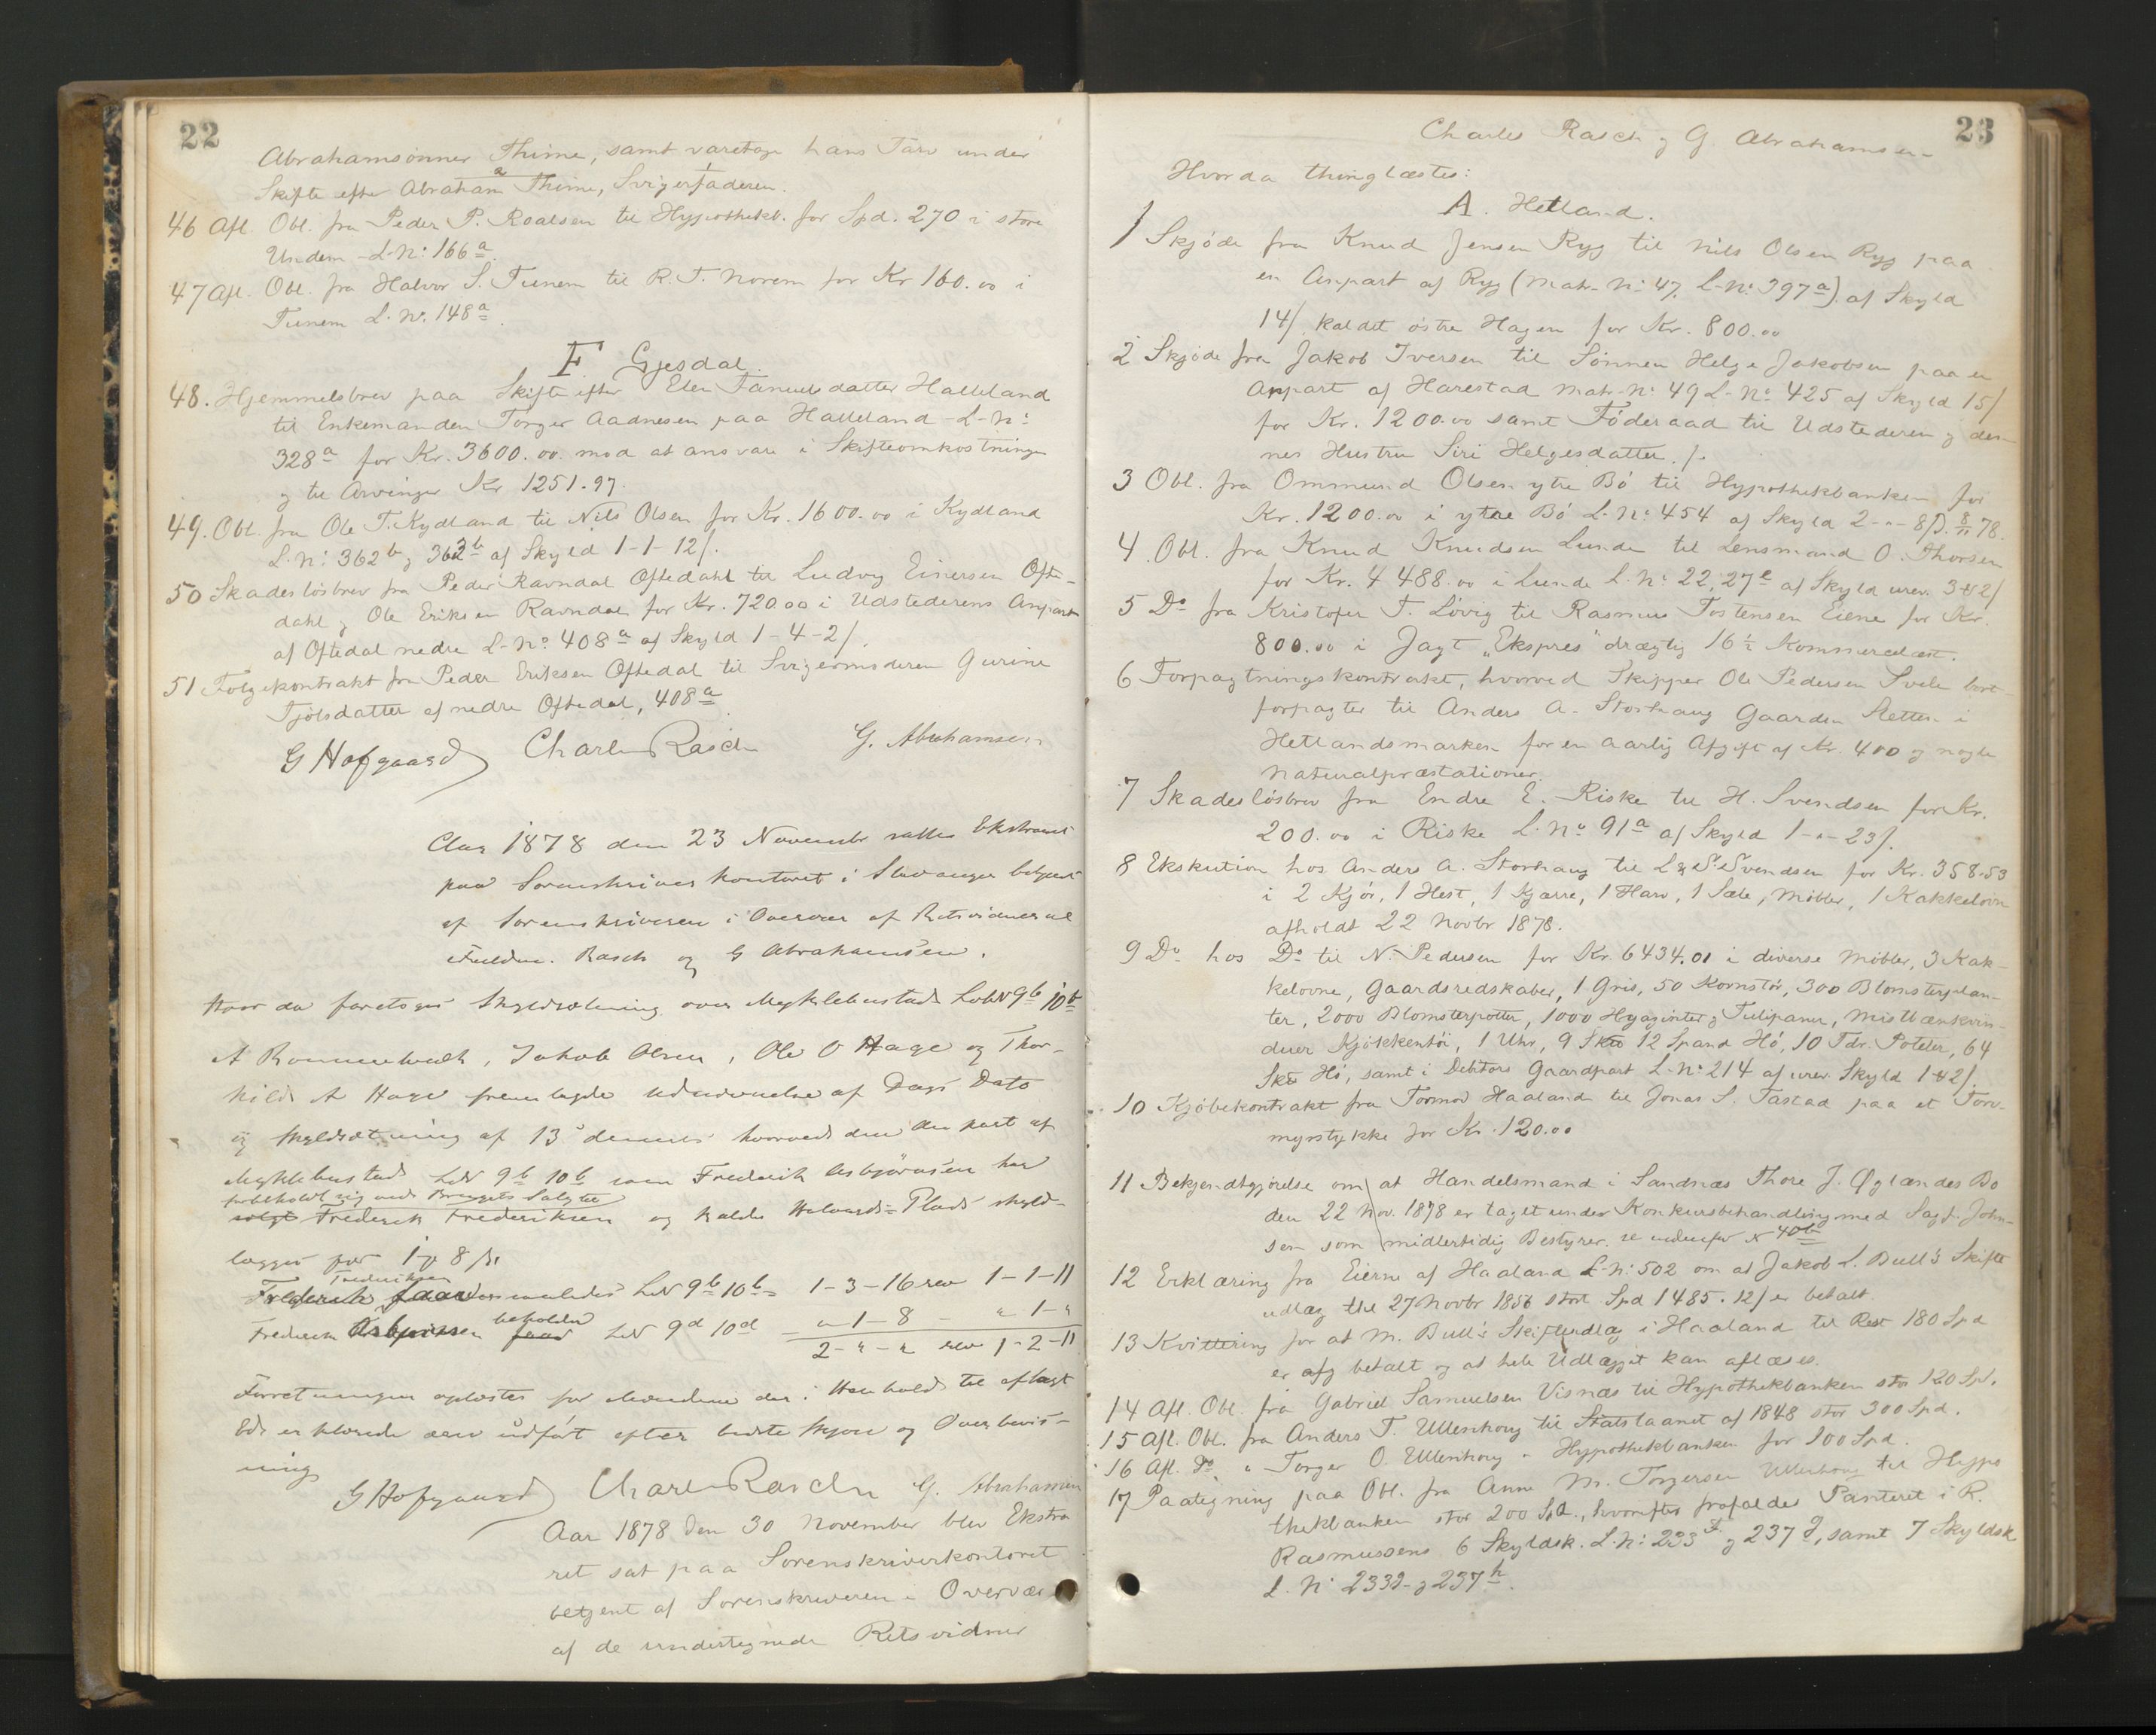 22
Abrahamsønner Thime, samt varetage hans Tarv under
Skifte efter Abraham Thime, Svigerfaderen.
46 Afl. Obl. fra Peder P. Roalsen til Hypothekb. for Spd. 270 i store
Undem L-No: 166a
47 Afl. Obl. fra Halvor S. Tunem til R. T. Norem for Kr 160.00 i
Tunem L. No. 148a.
F. Gjesdal.
48. Hjemmelsbrev paa Skifte efter Elen Tanuelsdatter Halleland
til Enkemanden Torger Aadnesen paa Halleland L-No:
328a for Kr. 3600.00. mod at ansvare i Skifteomkostninger
og til Arvinger Kr 1251.97.
49. Obl. fra Ole T. Kydland til Nils Olsen for Kr. 1600.00 i Kydland
L. No: 362b og 363b af Skyld 1-1-12/.
50 Skadesløsbrev fra Peder Ravndal Oftedahl til Ludvig Einersen Ofte-
dahl og Ole Eriksen Ravndal for Kr. 720.00 i Udstederens Anpart
af Oftedal nedre L-No: 408a af Skyld 1-4-2/.
51 Følgekontrakt fra Peder Eriksen Oftedal til Svigermoderen Gurine
Tjølsdatter af nedre Oftedal, 408a.
G Hofgaard Charles Rasch G. Abrahamsen
Aar 1878 den 23 November sattes Ekstraret
paa Sorenskriverkontoret i Stavanger betjent
af Sorenskriveren i Overvær af Retsvidnerne
Fuldm. Rasch og G Abrahamsen.
Hvor da foretoges Skyldsætning over Myklebustad LobN 9b 10b
A Rommetvedt, Jakob Olsen, Ole O Hage og Thor-
kild A Hage fremlagde udnævnelse af Dags Dato
og Skyldsætning af 13 dennes hvorved den den part af
Myklebustad LobN 9b 10b som Frederik Asbjørnsen har
forbeholdt sig ved Brugets Salg til
solgt Frederik Frederiksen og kaldes Plads skyld-
lægges for 1 og 8 /.
Frederiksen
Frederik LobN 9b 10b = 1-3-16 rev 1-1-11
beholder
Frederik Asbjørnsen faar LobN 9d 10d " 1-8 - " 1-"
2-"-" rev 1-2-11
Forretningen oplæstes for Mændene der i Henhold til aflagt
Ed erklærede den udført efter bedste Skjøn og Overbevis-
ning
G Hofgaard Charles Rasch G. Abrahamsen
Aar 1878 den 30 November blev Ekstra
ret sat paa Sorenskriverkontoret
betjent af Sorenskriveren i Overvær
af de undertegnede Retsvidner
23
Charles Rasch og G. Abrahamsen-
Hvorda thinglæstes:
A. Hetland.
1 Skjøde fra Knud Jensen Ryg til Nils Olsen Ryg paa
en Anpart af Ryg (Matr-No: 47, L-No: 397a) af Skyld
14/ kaldet østre Hagen for Kr. 800.00
2 Skjøde fra Jakob Iversen til Sønnen Helge Jakobsen paa en
Anpart af Harestad Matr-No: 49 L-No: 425 af Skyld 15/
for Kr. 1200.00 samt Føderaad til Udstederen og den-
nes Hustru Siri Helgesdatter. /.
3 Obl. fra Ommund Olsen ytre Bø til Hypothekbanken for
Kr. 1200.00 i ytre Bø L. No: 454 af Skyld 2-"-8/. D. 8/11 78.
4. Obl. fra Knud Knudsen Lunde til Lensmand O. Thorsen
for Kr. 4488.00 i Lunde L. No: 22, 27e af Skyld urev. 3 & 2/
5 Do fra Kristofer T. Løvig til Rasmus Tostensen Eiene for Kr.
800.00 i Jagt "Ekspres" drægtig 16½ Kommercelæst.
6 Forpagtningskontrakt, hvorved Skipper Ole Pedersen Svele bort-
forpagter til Anders A. Storhaug Gaarden Sletten i
Hetlandsmarken for en aarlig Afgift af Kr. 400 og nogle
Naturalpræstationer.
7 Skadesløsbrev fra Endre E. Riske til H. Svendsen for Kr.
200.00 i Riske L. No: 91a af Skyld 1-"-23/.
8 Ekskution hos Anders A. Storhaug til L & S. Svendsen for Kr. 358.53
i 2 Kjør, 1 Hest, 1 Kjærre, 1 Harv, 1 Sæle, Møbler, 1 Kakkelovn
afholdt 22 Novbr 1878.
9 Do hos Do til N. Pedersen for Kr. 6434.01 i diverse Møbler, 3 Kak-
kelovne, Gaardsredskaber, 1 Gris, 50 Kornstør, 300 Blomsterplan-
ter, 2000 Blomsterpotter, 1000 Hyaginter og Tulipaner, Mistbænkvin-
duer Kjøkkentøi, 1 Uhr, 9 Sk 12 Spand Hø, 10 Tdr. Poteter, 64
Sk Hø, samt i Debitors Gaardpart L-No: 214 af urev. Skyld 1 & 2/.
10 Kjøbekontrakt fra Tormod Haaland til Jonas S. Tastad paa et Torv-
myrstykke for Kr. 120.00
11 Bekjendtgjørelse om at Handelsmand i Sandnæs Thore J. Øglændes Bo
den 22 Nov. 1878 er taget under Konkursbehandling med Sagf. John-
sen som midlertidig Bestyrer. se nedenfor N 40b
12 Erklæring fra Eierne af Haaland L-No: 502 om at Jakob L. Bull's Skifte
udlæg thl 27 Novbr 1856 stort Spd 1485.12/ er betalt.
13 Kvittering for at M. Bull's Skifteudlæg i Haaland til Rest 180 Spd
er afg betalt og at hele Udlægget kan aflæses.
14 Afl. Obl. fra Gabriel Samuelsen Visnæs til Hypothekbanken stor 120 Spd.
15 Afl. Obl. fra Anders T. Ullenhoug til Statslaanet af 1848 stor 300 Spd.
16 Afl. Do " Torger O. Ullenhoug " Hypothekbanken for 100 Spd.
17 Paategning paa Obl. fra Anne M. Torgersen Ullenhoug til Hypo
thekbanken stor 200 Spd., hvorefter frafaldes Panteret i R.
Rasmussens 6 Skyldsk. L. No: 233f og 237g, samt 7 Skyldsk.
L. No 233g og 237h.